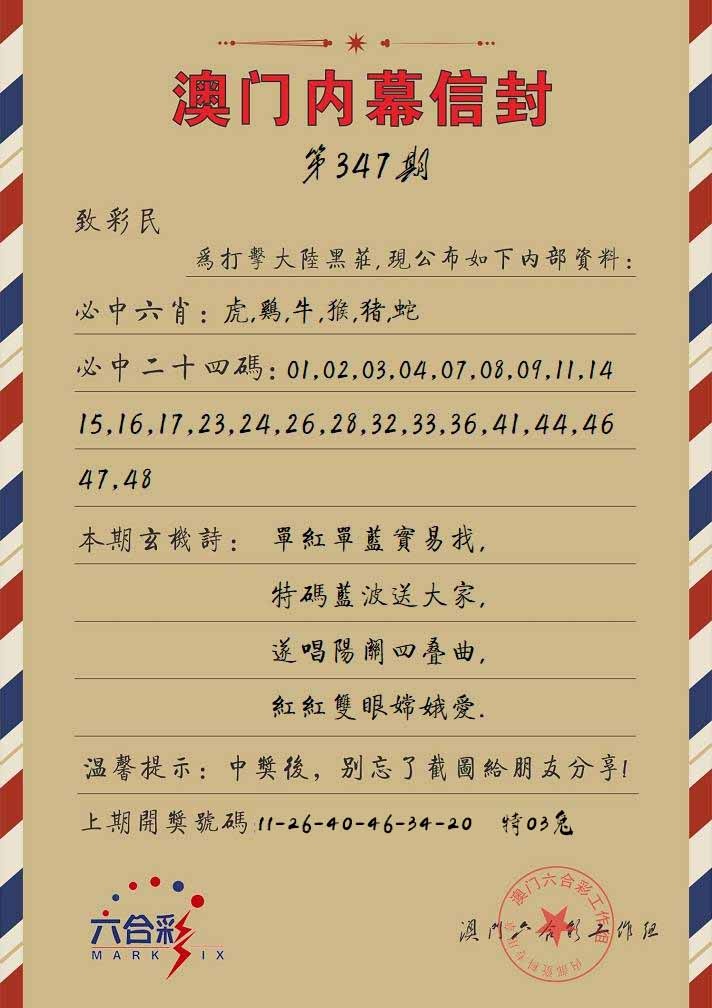 澳门内幕信封
第347期
致彩民
爲打擊大陸黑莊,現公布如下内部資料:
必中六肖: 虎,鷄,牛,猴,猪,蛇
必中二十四碼: 01,02,03,04,07,08,09,11,14
15,16,17,23,24,26,28,32,33,36,41,44,46
47,48
本期玄機詩: 單紅單藍實易找,
特碼藍波送大家,
遂唱陽關四叠曲,
紅紅雙眼嫦娥愛.
温馨提示: 中獎後, 别忘了截圖給朋友分享!
上期開獎號碼:11-26-40-46-34-20 特03兔
六合彩
MARK SIX
澳门六合彩工作组
澳门六合彩工作组
内部资料专用章